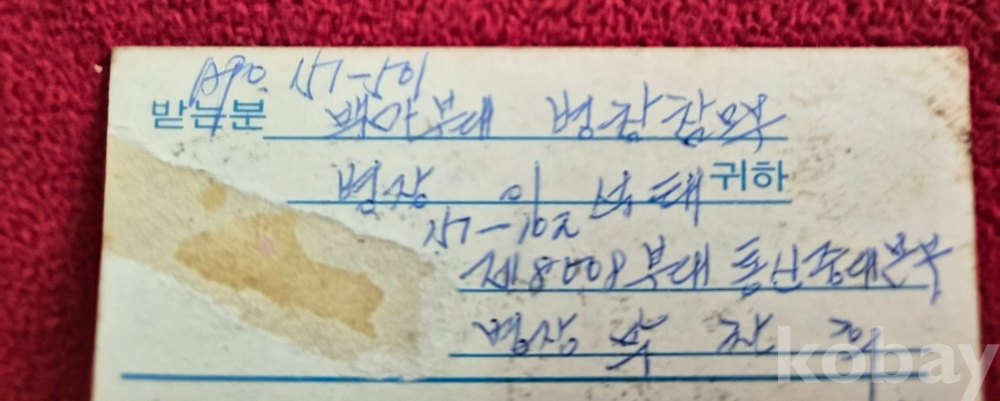 APO 151-501
받는분 백마부대 병장참모부
병장 이 석태 귀하
151-102
제8008부대 통신중대본부
병장
kobay